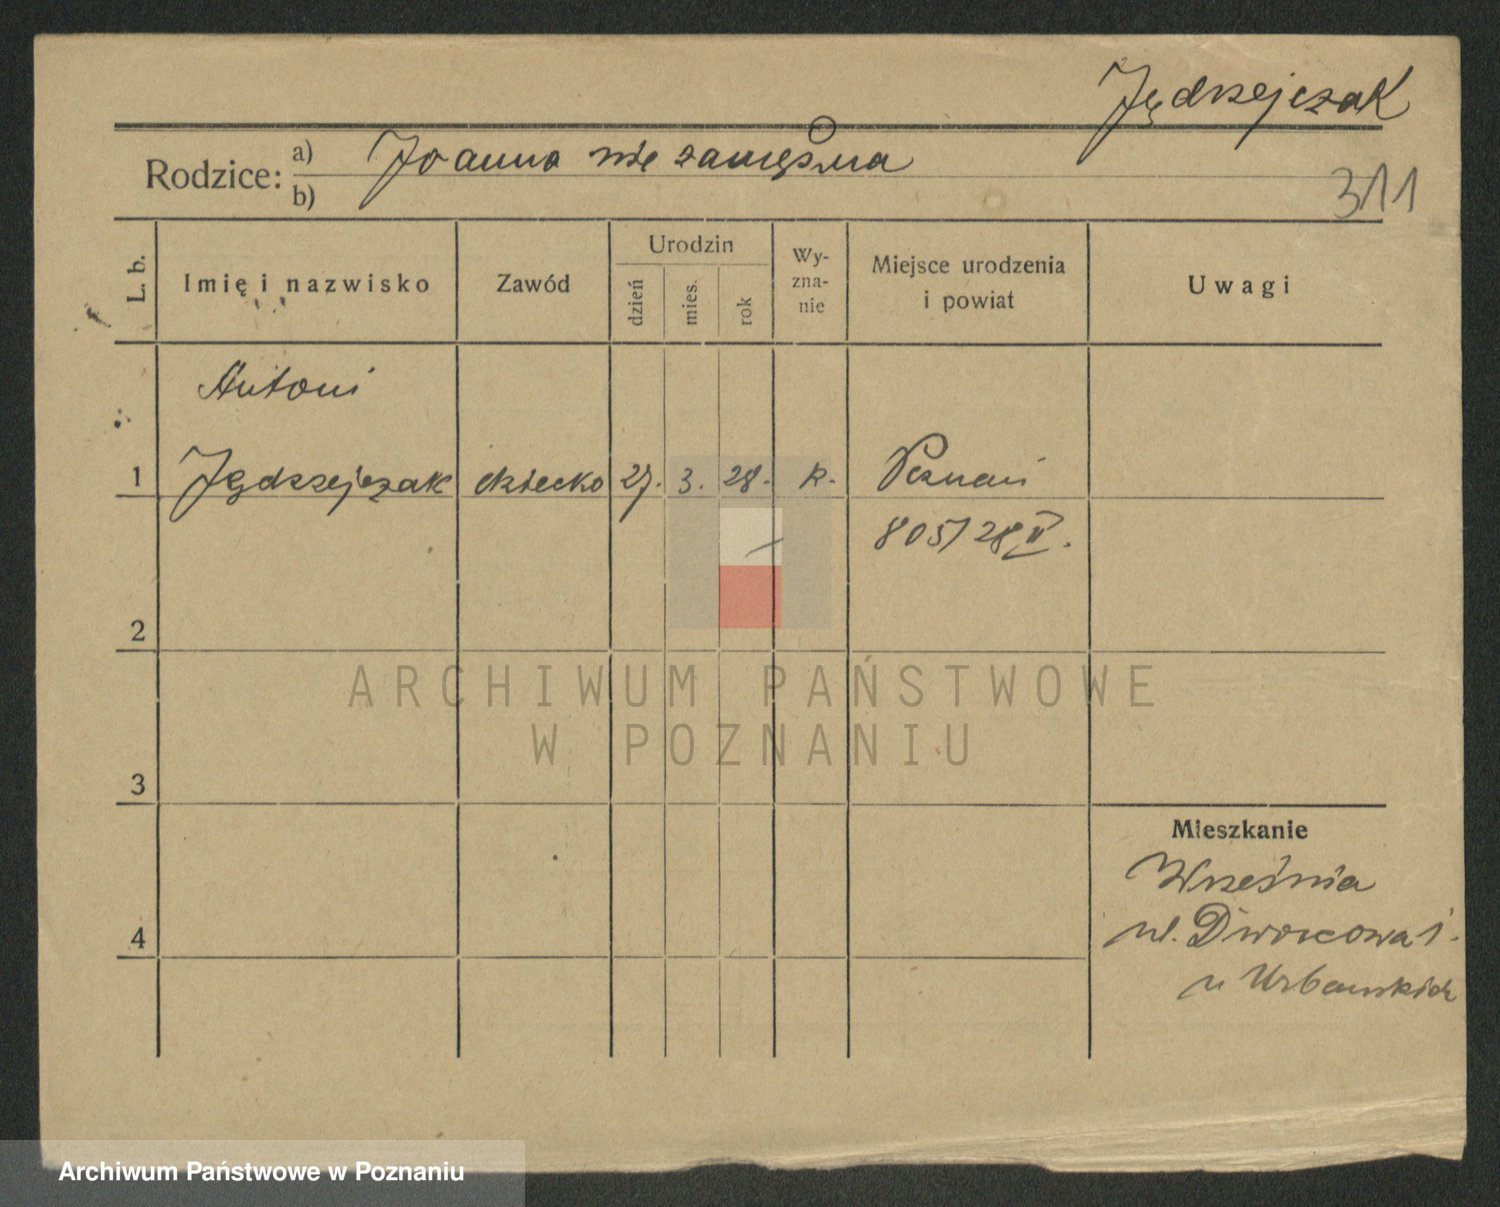 Jędrzejczak
Rodzice: a) Joanna nie zamężna
b)
311
L. b.
Imię i nazwisko
Zawód
Urodzin
dzień
mies.
rok
Wy-
zna-
nie
Miejsce urodzenia
i powiat
Uwagi
Antoni
1 Jędrzejczak dziecko 27. 3. 28. k. Poznań
805/28 II.
2
3
4
Mieszkanie
Września
ul. Dworcowa 1.
u Urbańskich
ARCHIWUM PAŃSTWOWE
W POZNANIU
Archiwum Państwowe w Poznaniu